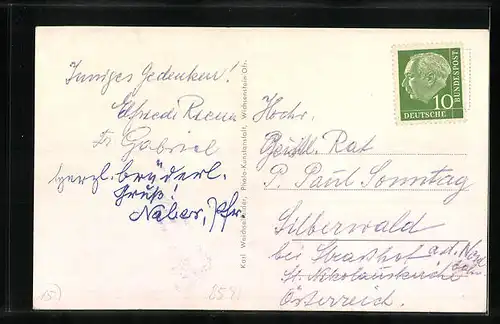 Inniges Gedenken!
Elfriede
Fr. Gabriel
herzl. brüderl.
Gruß!
Naber, Pfr.
Karl Weidner, Photo-Kunstanstalt,
10
DEUTSCHE
BUNDESPOST
Hochw.
Geistl. Rat
P. Paul Sonntag
Silberwald
bei Strasshof a.d. Nord
bahn
St. Nikolauskirche
Österreich.
15)